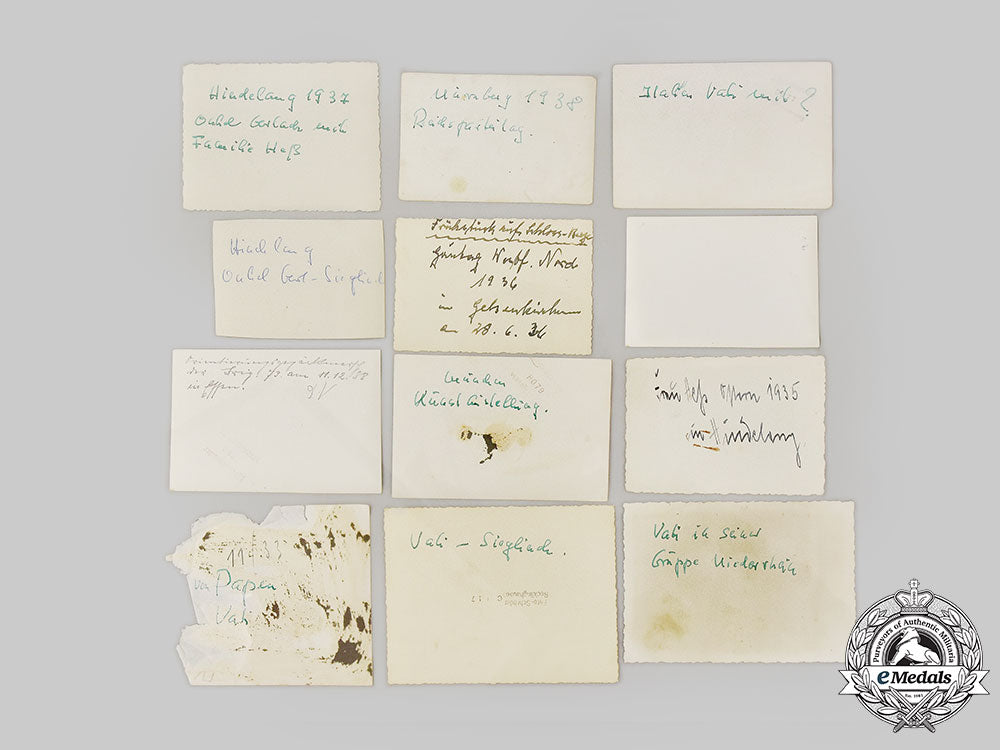 Hindelang 1937
Onkel Gerlach mit
Familie Heß
Nürnberg 1938
Reichsparteitag.
Italien Vati mit ?
Hindelang
Onkel Gerl-Sieglinde
Frühstück auf Schloss
Gautag Westf. Nord
1936
in Gelsenkirchen
am 28. 6. 36
der am 11.12.38
in Essen.
München
Kunstausstellung.
Frau Heß Ostern 1935
in Hindelang
11 33
von Papen
Vati
Vati - Sieglinde.
Recklinghausen
Vati in seiner
Gruppe Niederrhein
Purveyors of Authentic Militaria
eMedals